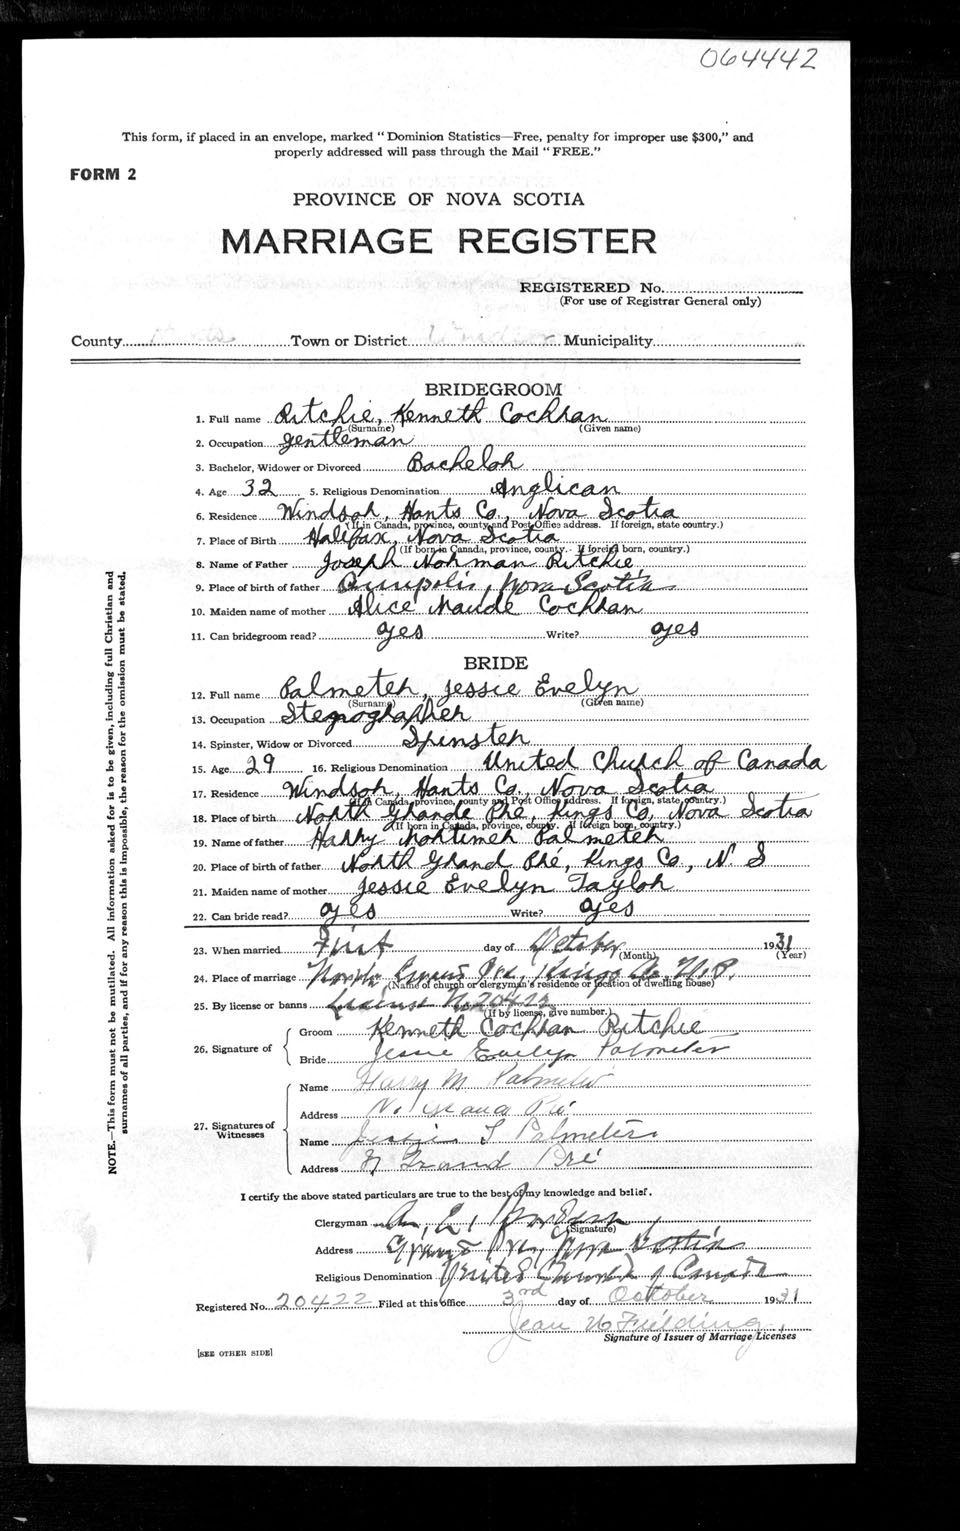 064442
This form, if placed in an envelope, marked "Dominion Statistics—Free, penalty for improper use $300," and
properly addressed will pass through the Mail "FREE."
FORM 2
PROVINCE OF NOVA SCOTIA
MARRIAGE REGISTER
REGISTERED No.
(For use of Registrar General only)
County Hants Town or District Windsor Municipality
BRIDEGROOM
1. Full name Ritchie, Kenneth Cochran
(Surname) (Given name)
2. Occupation gentleman
3. Bachelor, Widower or Divorced Bachelor
4. Age 32 5. Religious Denomination Anglican
6. Residence Windsor, Hants Co., Nova Scotia
(If in Canada, province, county and Post Office address. If foreign, state country.)
7. Place of Birth Halifax, Nova Scotia
(If born in Canada, province, county. If foreign born, country.)
8. Name of Father Joseph Norman Ritchie
9. Place of birth of father Annapolis, Nova Scotia
10. Maiden name of mother Alice Maude Cochran
11. Can bridegroom read? yes Write? yes
BRIDE
12. Full name Palmeter, Jessie Evelyn
(Surname) (Given name)
13. Occupation Stenographer
14. Spinster, Widow or Divorced Spinster
15. Age 29 16. Religious Denomination United Church of Canada
17. Residence Windsor, Hants Co., Nova Scotia
(If in Canada, province, county and Post Office address. If foreign, state country.)
18. Place of birth North Grande Pre, Kings Co, Nova Scotia
(If born in Canada, province, county. If foreign born, country.)
19. Name of father Harry Mortimer Palmeter
20. Place of birth of father North Grand Pre, Kings Co., N. S
21. Maiden name of mother Jessie Evelyn Taylor
22. Can bride read? yes Write? yes
23. When married First day of October 1931
(Month) (Year)
24. Place of marriage North Grand Pre, Kings Co. N.S.
(Name of church or clergyman's residence or location of dwelling house)
25. By license or banns License No. 20422
(If by license, give number.)
26. Signature of
Groom Kenneth Cochran Ritchie
Bride Jessie Evelyn Palmeter
27. Signatures of Witnesses
Name Harry M. Palmeter
Address N. Grand Pré
Name Jessie T Palmeter
Address N Grand Pré
NOTE.—This form must not be mutilated. All information asked for is to be given, including full Christian and
surnames of all parties, and if for any reason this is impossible, the reason for the omission must be stated.
I certify the above stated particulars are true to the best of my knowledge and belief.
Clergyman
(Signature)
Address Grand Pre, Nova Scotia
Religious Denomination United Church of Canada
Registered No. 20422 Filed at this office 3rd day of October 1931
Jean Fielding
Signature of Issuer of Marriage Licenses
[SEE OTHER SIDE]